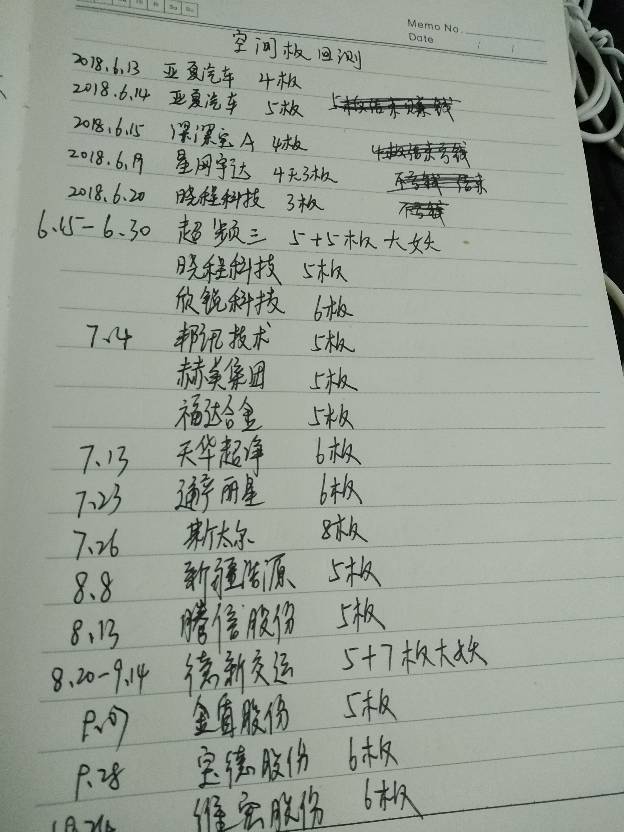 Memo No.
Date
空间板回测
2018.6.13 亚夏汽车 4板
2018.6.14 亚夏汽车 5板
2018.6.15 深深宝A 4板
2018.6.19 星网宇达 4天3板
2018.6.20 晓程科技 3板
6.15-6.30 超频三 5+5板 大妖
晓程科技 5板
欣锐科技 6板
7.4 邦讯技术 5板
赫美集团 5板
福达合金 5板
7.13 天华超净 6板
7.23 通宇丽星 6板
7.26 斯太尔 8板
8.8 新疆浩源 5板
8.13 腾信股份 5板
8.20-9.14 德新交运 5+7板大妖
9.07 金盾股份 5板
9.28 宝德股份 6板
维宏股份 6板